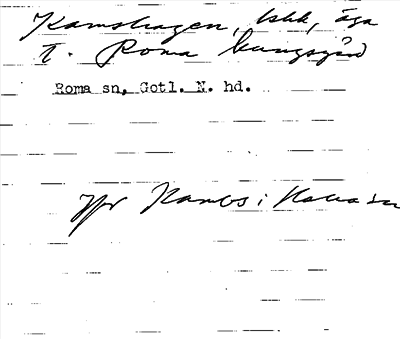 Kamshagen, bskh, äga
t. Roma kungsgård
Roma sn, Gotl. N. hd.
Jfr Kambs i